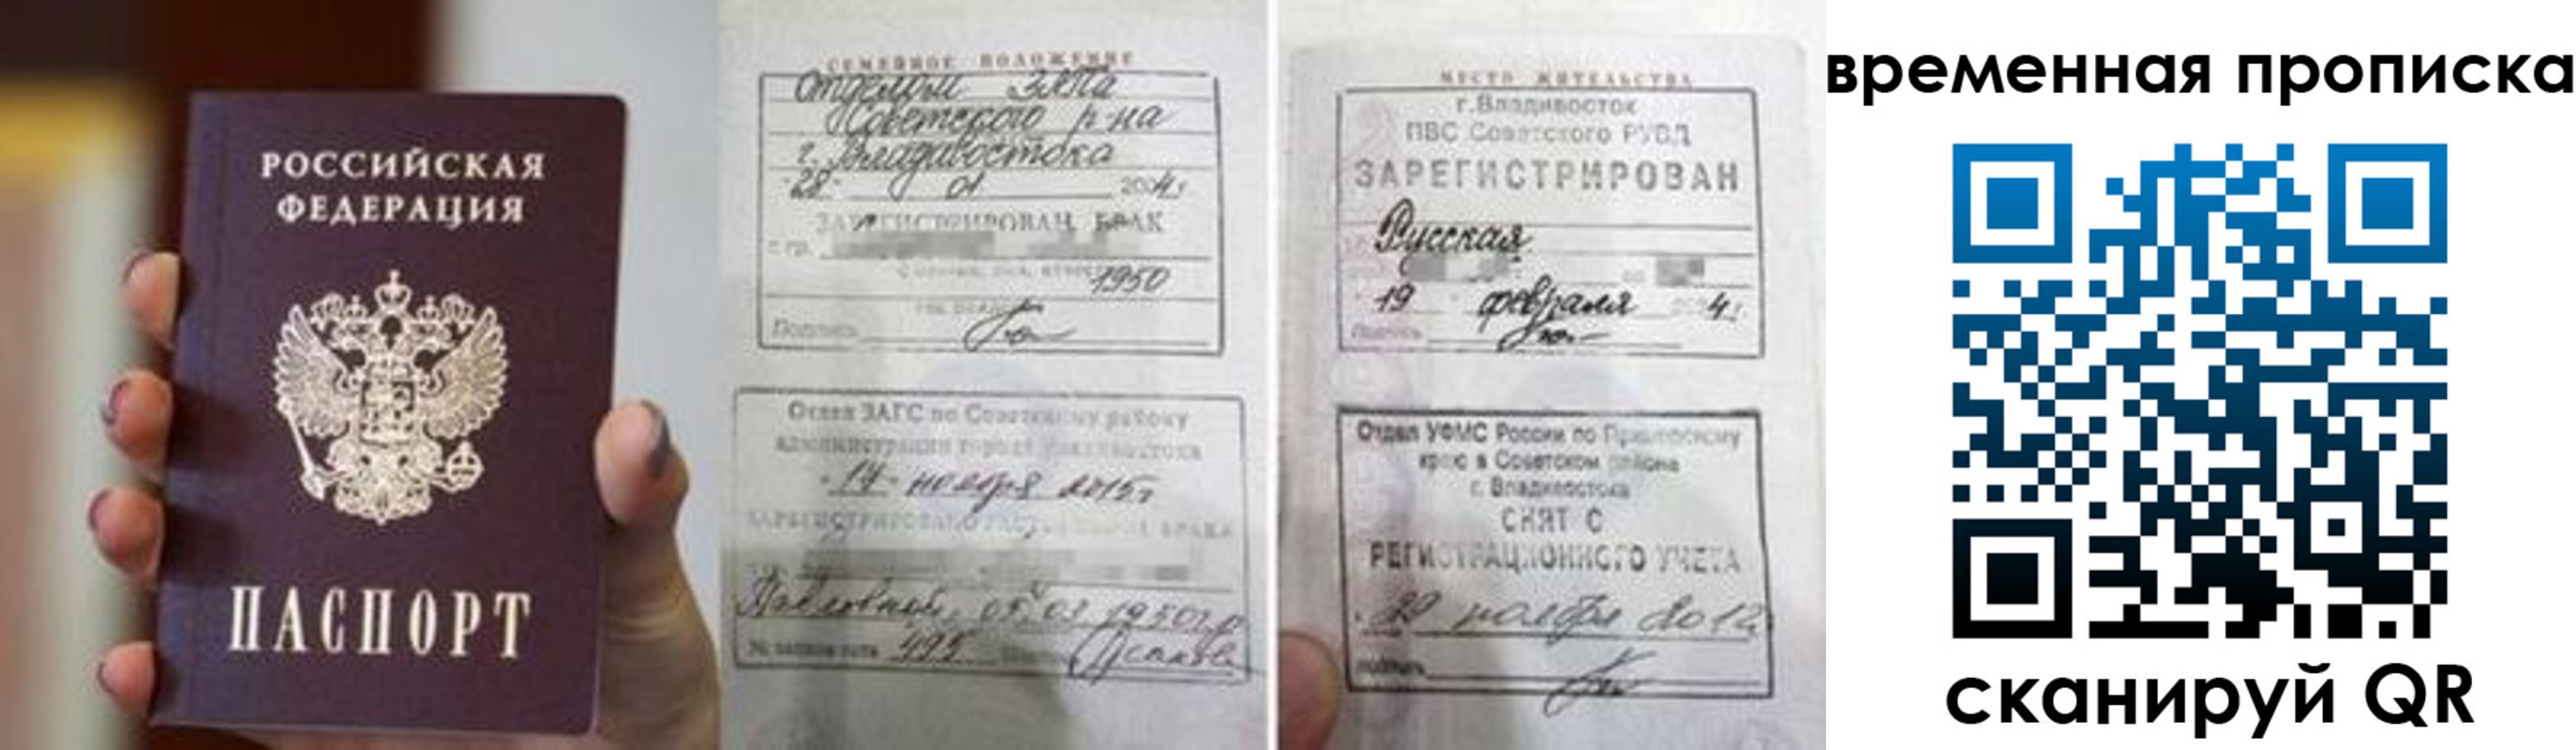 РОССИЙСКАЯ
ФЕДЕРАЦИЯ
ПАСПОРТ
СЕМЕЙНОЕ ПОЛОЖЕНИЕ
Отделом ЗАГСа
Советского р-на
г. Владивостока
"28" 01 2004 г.
ЗАРЕГИСТРИРОВАН БРАК
с гр.
1950
Подпись
Отдел ЗАГС по Советскому району
администрации города Владивостока
"17" ноября 2015 г.
Павловной, 05.03.1950 г.р.
№ 495
МЕСТО ЖИТЕЛЬСТВА
г.Владивосток
ПВС Советского РУВД
ЗАРЕГИСТРИРОВАН
Русская
19 февраля 4г.
Подпись
Отдел УФМС России по Приморскому
краю в Советском районе
г. Владивостока
СНЯТ С
РЕГИСТРАЦИОННОГО УЧЕТА
ноября 2012
подпись
временная прописка
сканируй QR